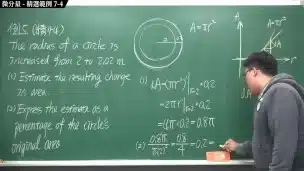 微分量 - 精選範例 7-4
The radius of a circle is
increased from 2 to 2.02 m
(1) Estimate the resulting change
in area.
(2) Express the estimate as a
percentage of the circle's
original area
A=πr²
A=πr²
(1) dA=(πr²)'
=2πr
=4π×0.2=0.8π
(2) 0.8π = 0.8/4 = 0.2 =